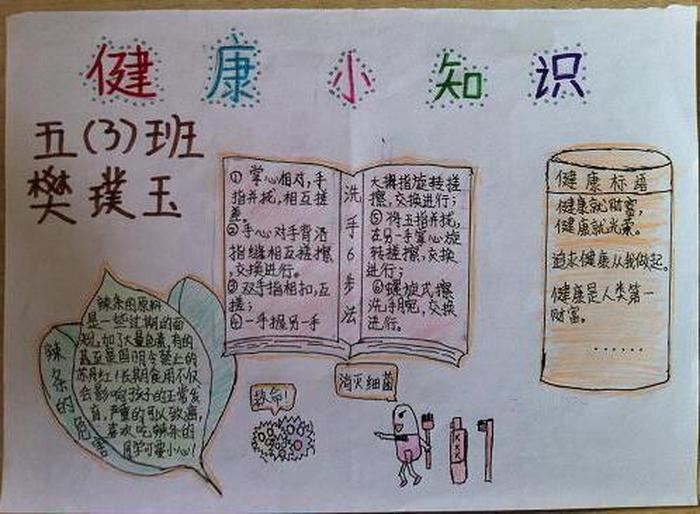 健康小知识
五(3)班
樊璞玉
洗手6步法
① 掌心相对,手
指并拢,相互搓
搓。
②手心对手背沿
指缝相互搓擦
,交换进行。
③双手指相扣,互
搓;
④一手握另一手
大拇指旋转搓
擦,交换进行;
⑤将五指并拢,
在另一手掌心旋
转搓擦,交换
进行;
⑥螺旋式擦
洗手腕,交换
进行。
健康标语
健康就财富,
健康就光荣。
追求健康从我做起。
健康是人类第一
财富。
……
辣条的危害
辣条的原料
是一些过期的面
粉,加了大量色素,有的
甚至是国明令禁止的
苏丹红!长期食用不仅
会影响孩子的正常发
育,严重的可以致癌,
喜欢吃辣条的
同学可要小心!
致命!
消灭细菌